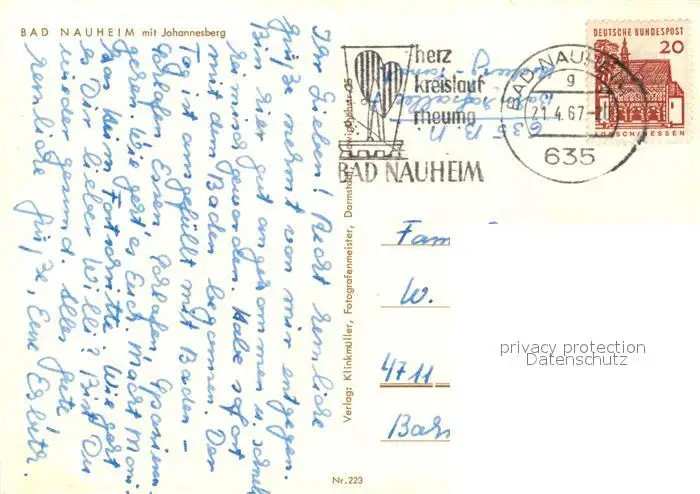 BAD NAUHEIM mit Johannesberg
Ihr Lieben! Recht herzliche
Grüße nehmt von mir entgegen.
Bin hier gut angekommen u. schnell
mit dem Baden begonnen. Der
Tag ist angefüllt mit Baden -
schlafen Essen schlafen, spazieren
gehen. Wie geht's Euch. Macht Moni
Fortschritte. Wie geht
es Dir lieber Willi? Bist Du
wieder gesund. Alles Gute
herzliche Grüße, Eure
Verlag: Klinkmüller, Fotografenmeister, Darmstadt
Nr. 223
herz
kreislauf
rheuma
BAD NAUHEIM
BAD NAUHEIM
g
21.4.67
635
DEUTSCHE BUNDESPOST
20
LORSCH/HESSEN
635 B N
Fam
W.
4711
privacy protection
Datenschutz